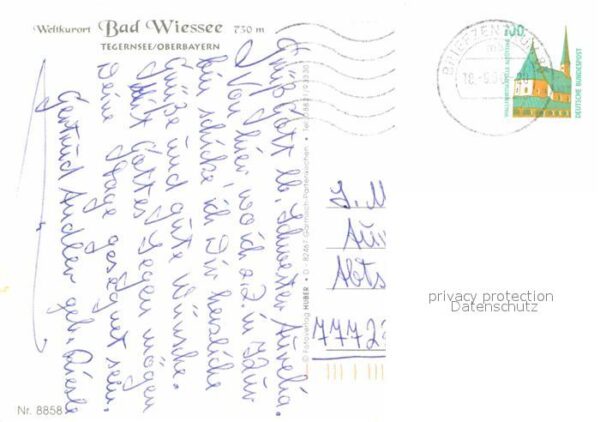 Weltkurort Bad Wiessee 730 m
TEGERNSEE/OBERBAYERN
Grüß Gott lb. Schwester Aurelia.
Von hier, wo ich z.Z. in Kur
bin schicke ich Dir herzliche
Grüße und gute Wünsche.
Mit Gottes Segen mögen
Deine Tage gesegnet sein.
Gertrud geb.
Nr. 8858
© Fotoverlag HUBER • D - 82467 Garmisch-Partenkirchen • Tel.
BRIEFZENTRUM
100
DEUTSCHE BUNDESPOST
WALLFAHRTSKAPELLE ALTÖTTING
S. M
Abts
7772
privacy protection
Datenschutz